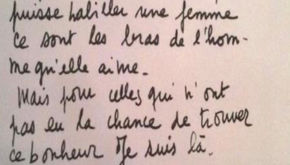 puisse habiller une femme
ce sont les bras de l'hom-
me qu'elle aime.
Mais pour celles qui n'ont
pas eu la chance de trouver
ce bonheur Je suis là.